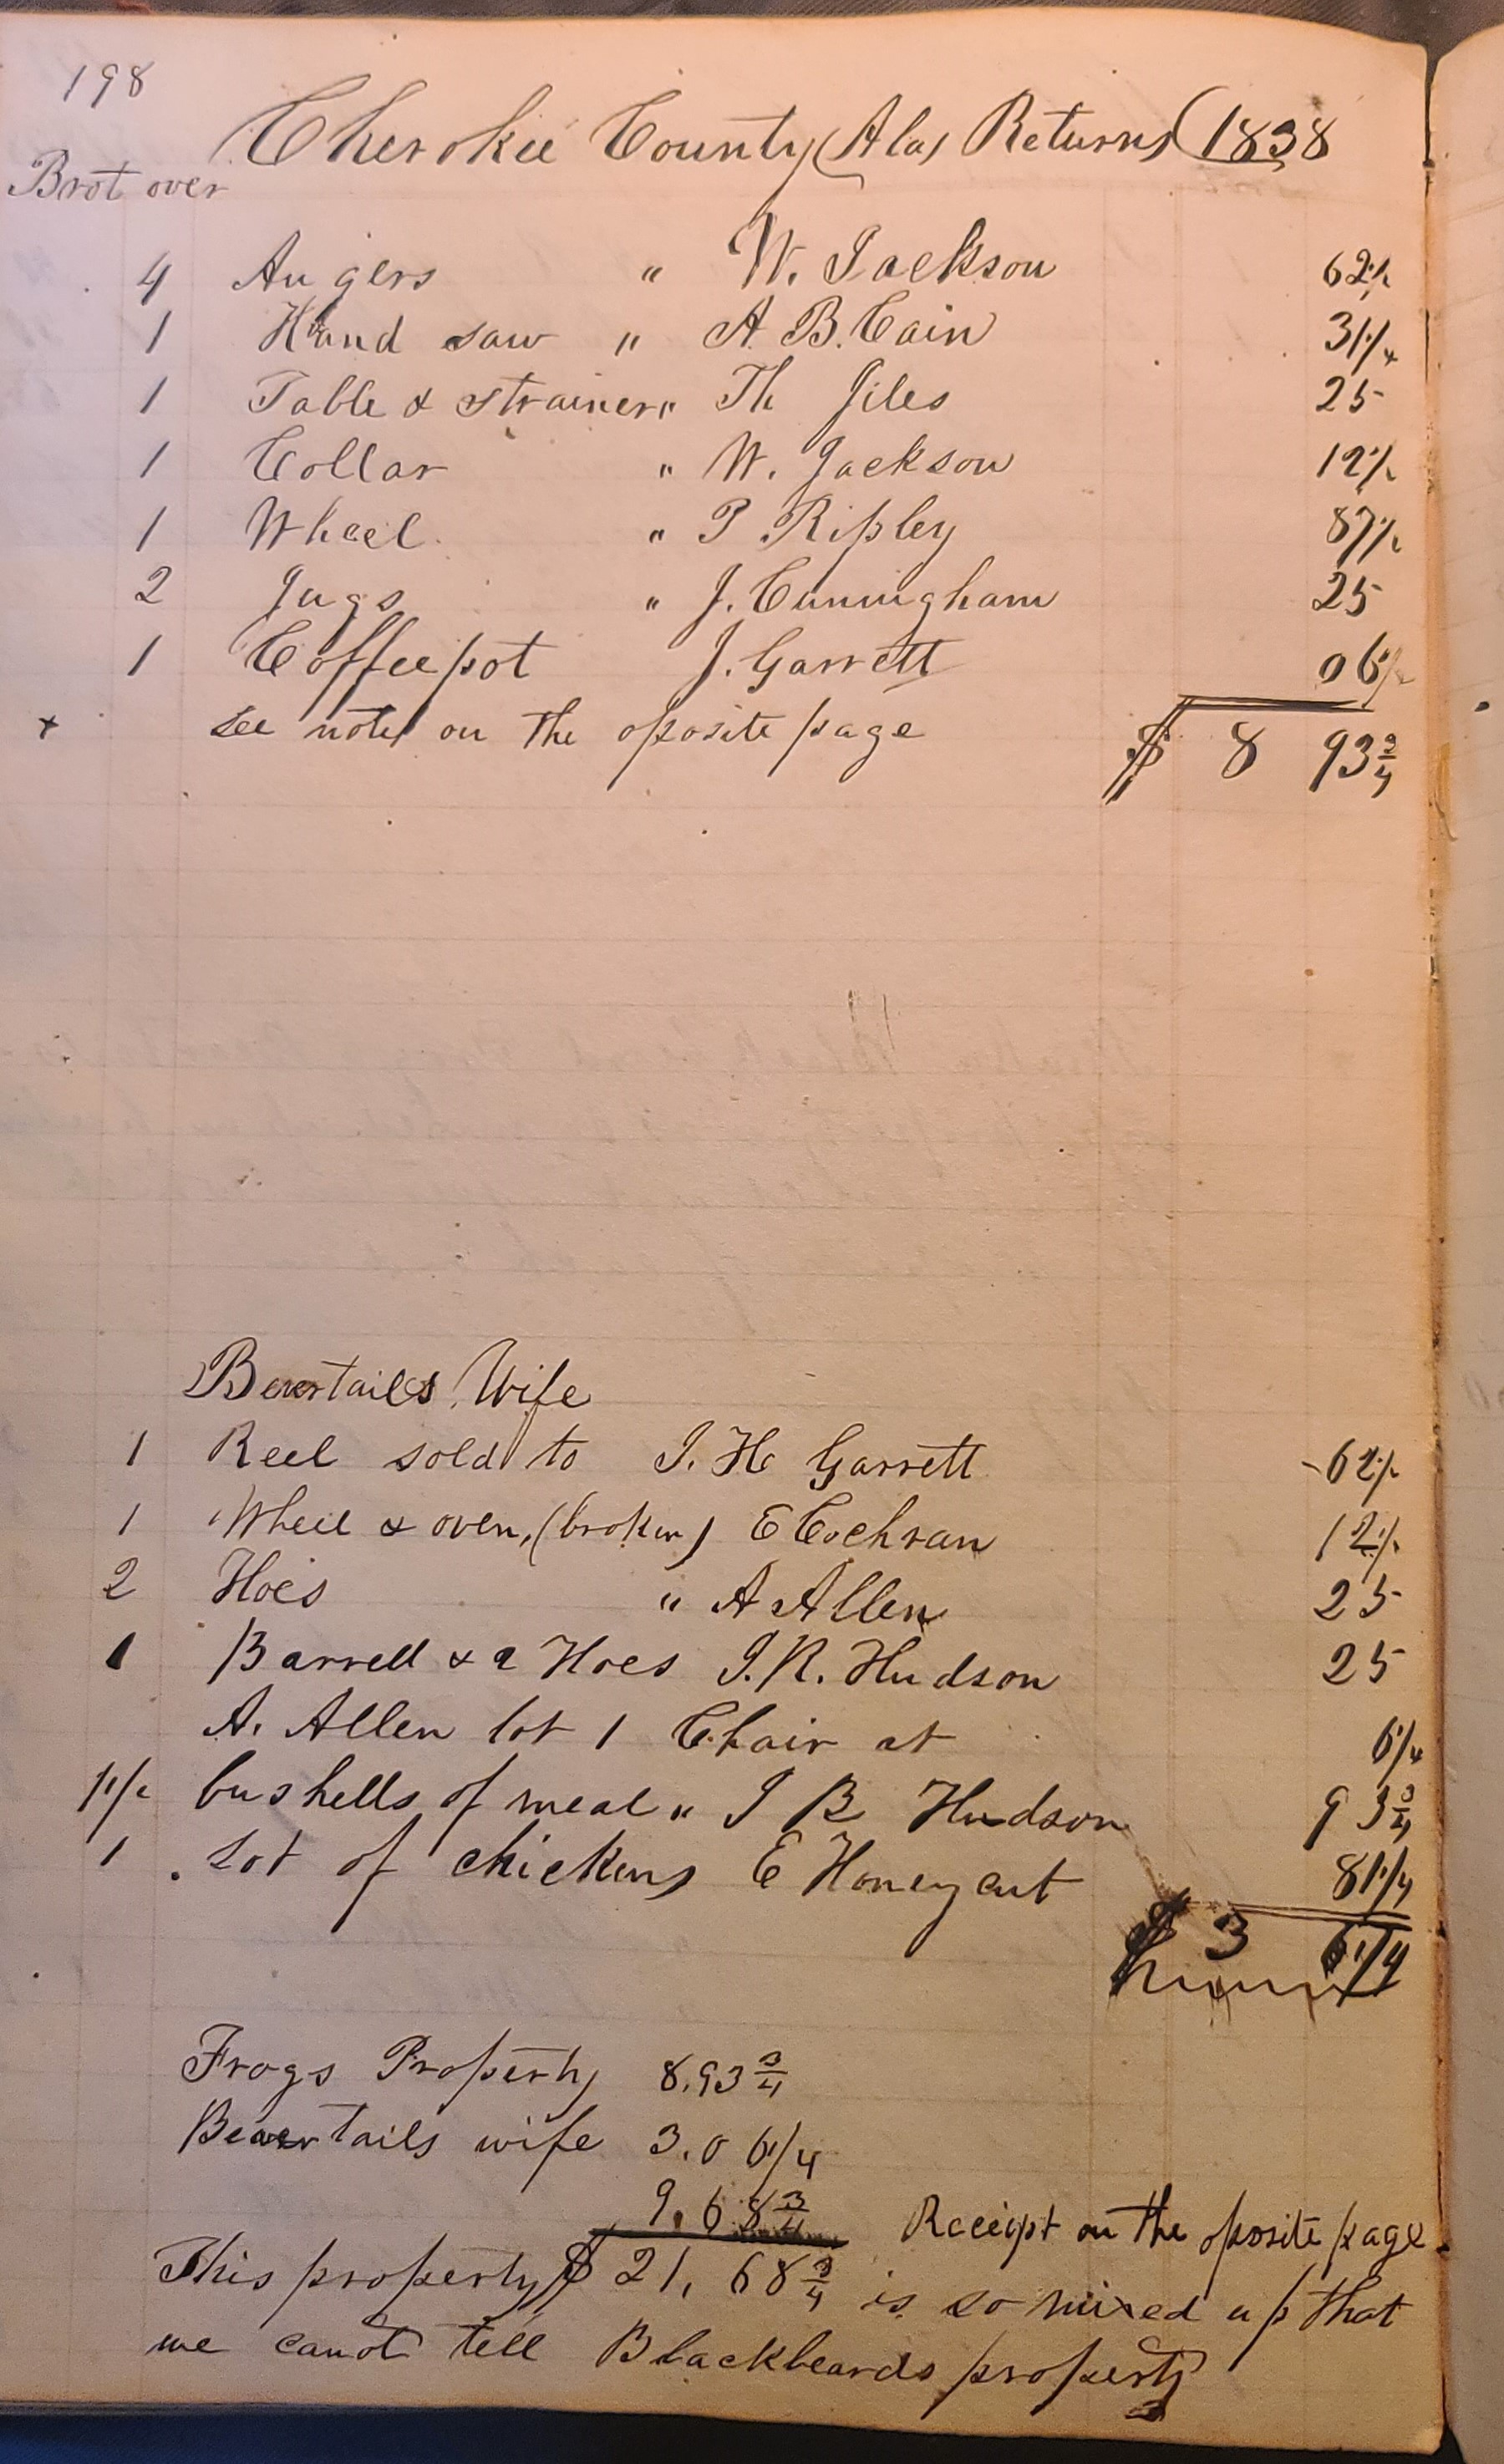 198
Cherokee County (Ala) Returns (1838
Brot over
4 Augers " W. Jackson 62 1/2
1 Hand saw " A B. Cain 31 1/4
1 Table & strainer " Th Giles 25
1 Collar " W. Jackson 12 1/2
1 Wheel " P Ripley 87 1/2
2 Jugs " J. Cunningham 25
1 Coffee pot J. Garrett 06 1/4
+ See note on the oposite page $ 8 93 3/4
Beavertails Wife
1 Reel sold to J. H Garrett 62 1/2
1 Wheel & oven, (broken) E Cochran 12 1/2
2 Hoes " A Allen 25
1 Barrell & 2 Hoes J. R. Hudson 25
A. Allen lot 1 Chair at 6 1/4
1 1/2 bushells of meal " J B Hudson 93 3/4
1 Lot of chickens E Honeycut 81 1/4
$ 3 6 1/4
Frogs Property 8.93 3/4
Beavertails wife 3.06 1/4
9.68 3/4 Receipt on the oposite page
This property $ 21,68 3/4 is so mixed up that
we canot tell Blackbeards property